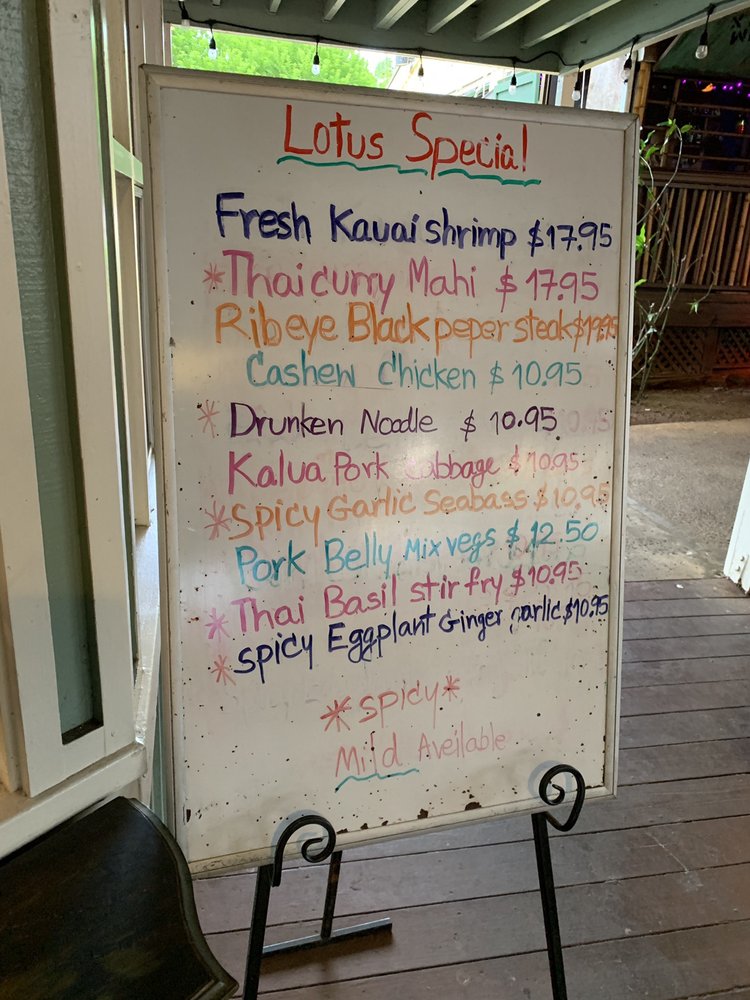 Lotus Special
Fresh Kauai shrimp $17.95
*Thai curry Mahi $17.95
Rib eye Black peper steak $19.95
Cashew Chicken $10.95
* Drunken Noodle $10.95
Kalua Pork Cabbage $10.95
*Spicy Garlic Seabass $10.95
Pork Belly Mix vegs $12.50
*Thai Basil stir fry $10.95
*spicy Eggplant Ginger garlic $10.95
*spicy*
Mild Aveilable